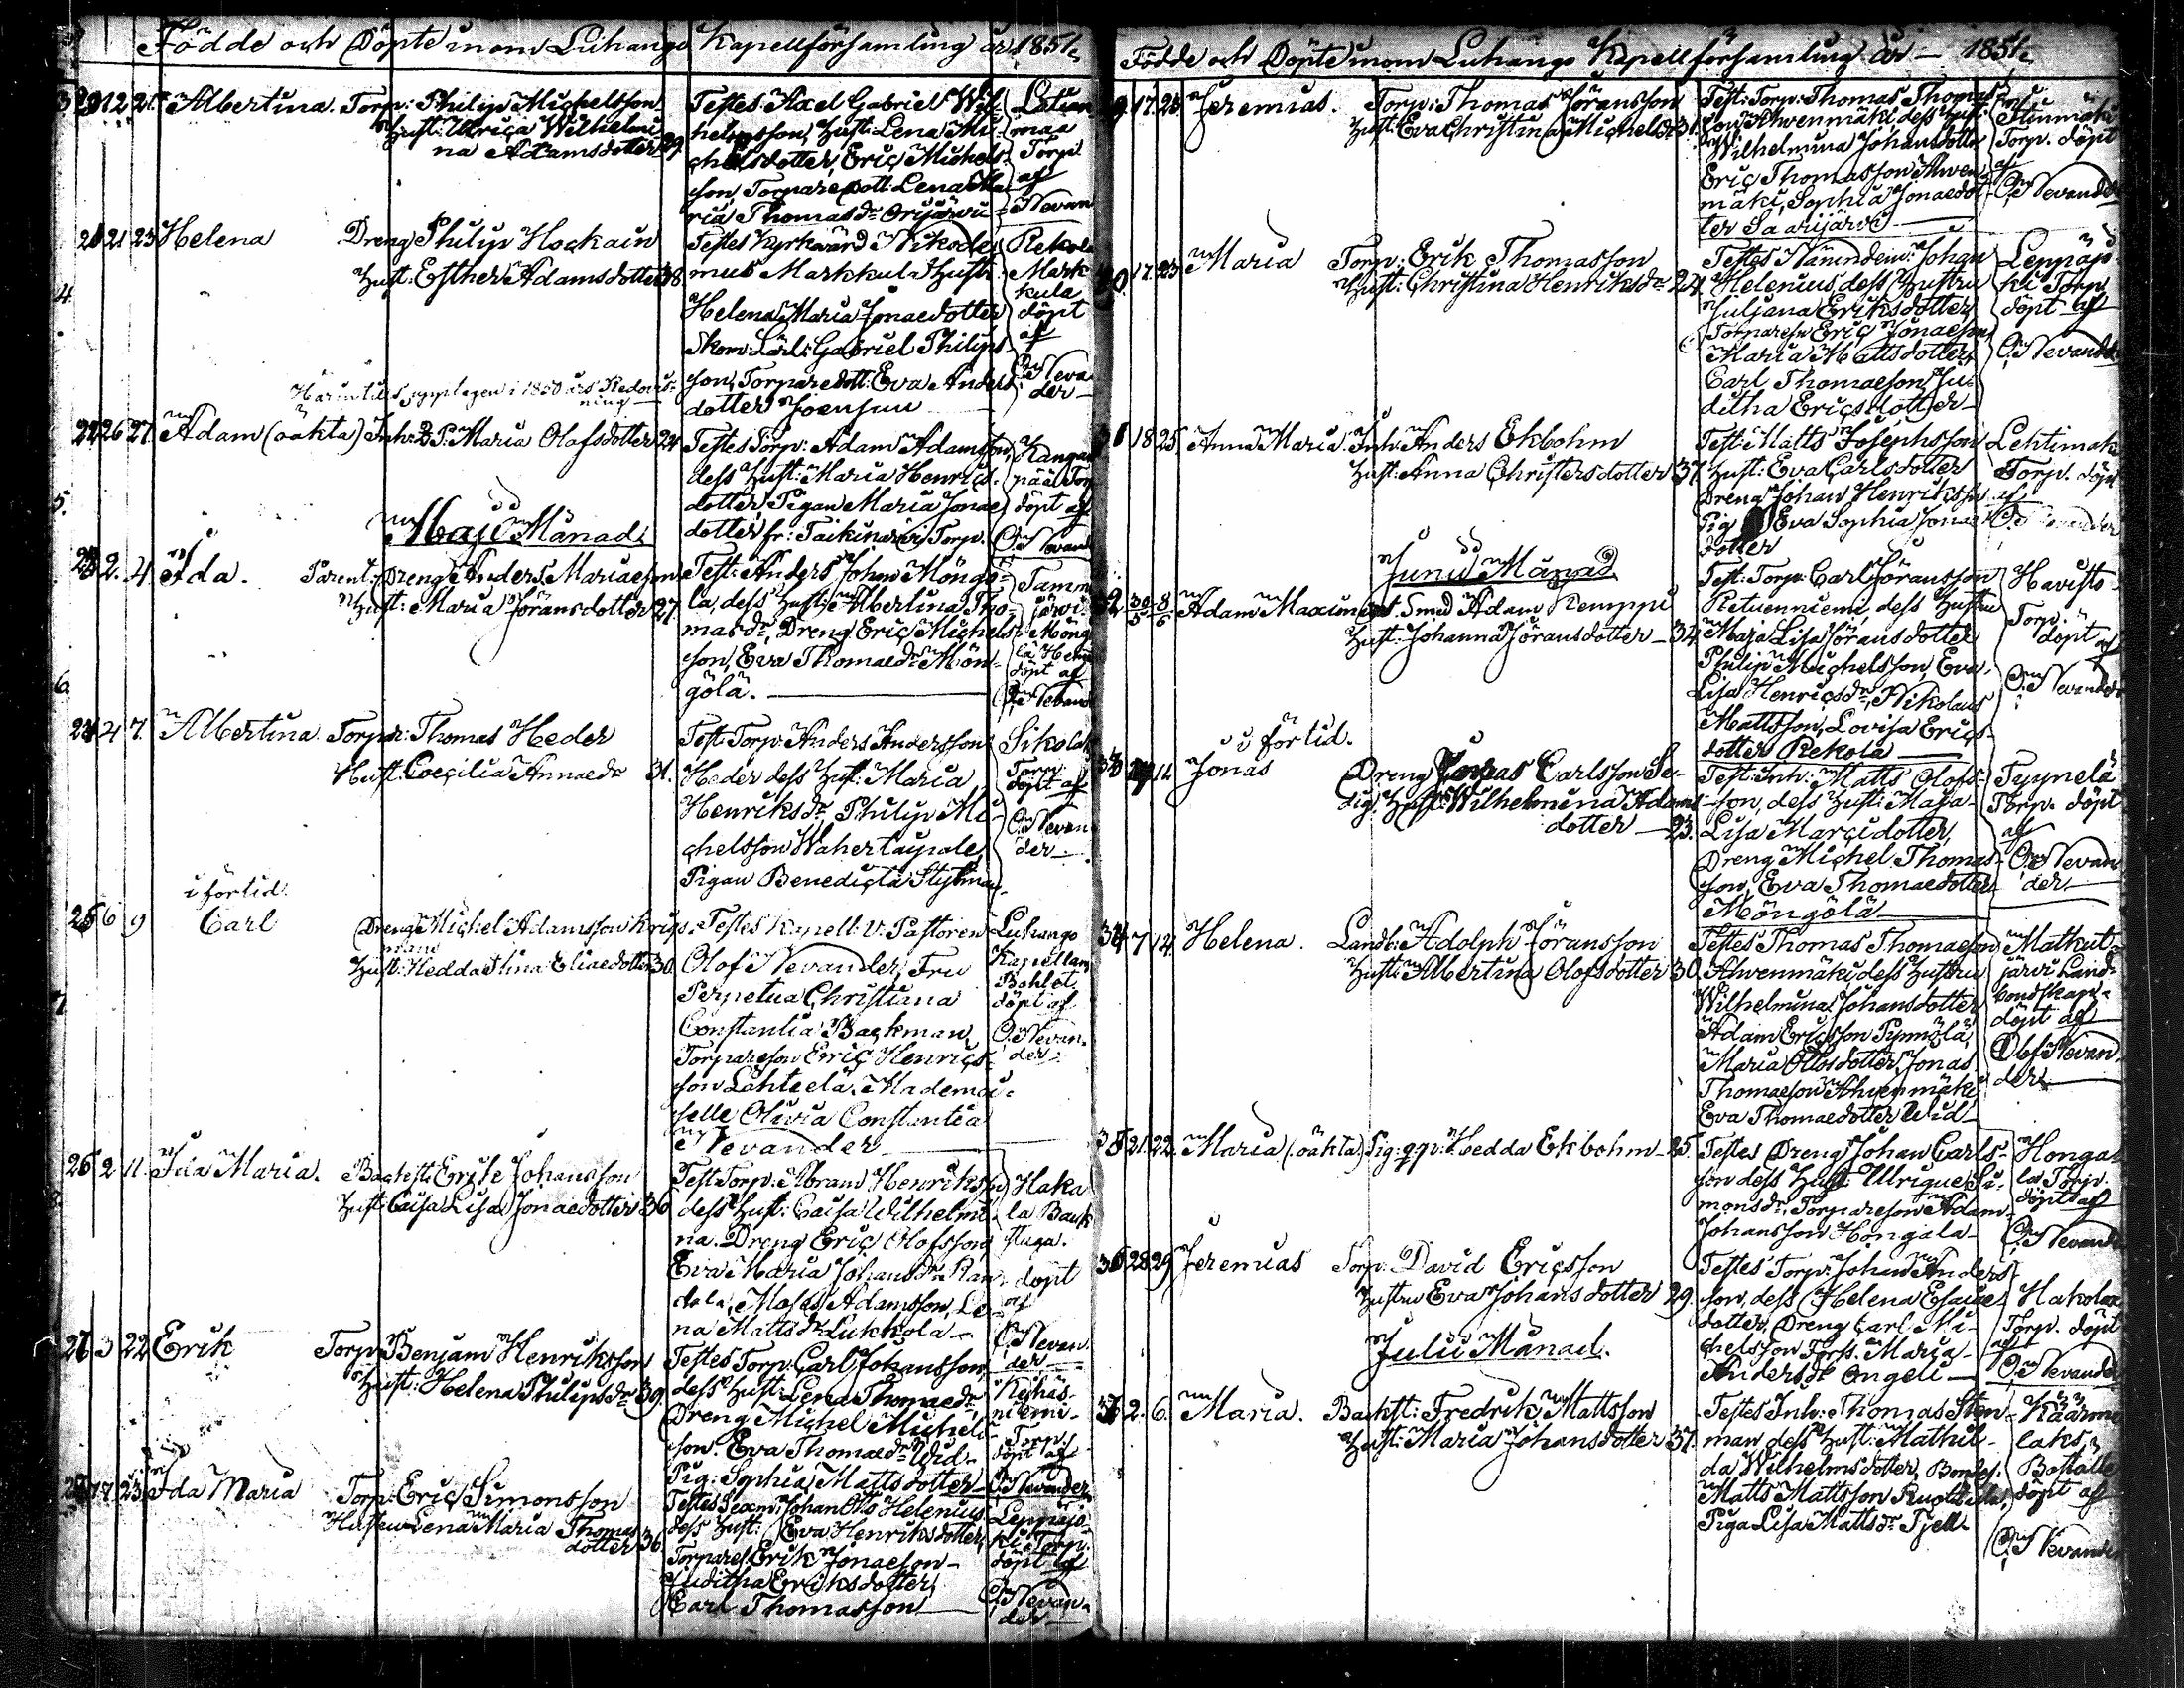 Födde och Döpte inom Luhango Kapellförsamling år 1851.
20 12 21. Albertina. Torp: Philip Michelsson
Hust: Ulrica Wilhelmi-
na Adamsdotter 29.
Testes Axel Gabriel Wil-
helmsson, Hust: Lena Mi-
chelsdotter, Eric Michels-
son, Torparedott: Lena Ma-
ria Thomasdr Orijärvi
Torp
af
Nevan
21 21 23 Helena Dreng Philip Hockain
Hust: Esther Adamsdotter 38.
Testes Kyrkvärd Nikode-
mus Markkula Hustr:
Helena Maria Jonaedotter
Skom: Lärl: Gabriel Philips-
son, Torparedott: Eva Anders
dotter Joensuu
Rekola
Mark
kula
döpt
af
O: Neva
der
Härintills upptagen i 1850 års Redovis-
ning
22 26 27. Adam (oäkta) Inh: Maria Olofsdotter 24
Testes Torp: Adam Adamsson,
dess Hust: Maria Henrics-
dotter, Pigan Maria Jonae
dotter fr: Taikinainen Torp.
Kangas
pää Tor
döpt af
O: Nevan
Maji Månad.
23 2. 4. Ida. Parent: Dreng Anders Mariaeson
Hust: Maria Jöransdotter 27.
Test: Anders Johan Möngö-
lä, dess Hust: Albertina Tho-
masdr, Dreng Eric Michels-
son, Eva Thomaedr Mön-
gölä.
Tamm
järvi
Möng
lä Hem
döpt af
O: Nevand
24 4 7. Albertina. Torpar: Thomas Heder
Hust: Coecilia Annaedr 31.
Test: Torp: Anders Andersson
Heder dess Hust: Maria
Henriksdr, Philip Mi-
chelsson Wahertaipale,
Pigan Benedicta Stickman.
Sikola
Torp.
döpt af
O: Nevan
der
i förtid.
25 6 9 Carl Dreng Michel Adamsson Krigs-
man
Hust: Hedda Stina Eliaedotter 30.
Testes Kapell: V: Pastoren
Olof Nevander, Fru
Perpetua Christiana
Constantia Backman,
Torpareson Eric Henrics-
son Lahteelä. Mademoi-
selle Olivia Constantia
Nevander
Luhango
Kapellans
Bohlet
döpt af
O: Nevan
der
26 2 11. Ida Maria. Backst: Eric Johansson
Hust: Caisa Lisa Jonaedotter 36
Test: Torp: Abram Henriksson
dess Hust: Caisa Wilhelmi-
na. Dreng Eric Olofsson,
Eva Maria Johansdr Ran-
tala, Moses Adamsson, Le-
na Mattsdr Lukkola
Haka
la Back
stuga.
döpt
af
O: Nevan
der
27 3 22 Erik Torp: Benjam Henriksson
Hust: Helena Philipsdr 39.
Testes Torp: Carl Johansson,
dess Hust: Lena Thomaedr,
Dreng Michel Michels-
son. Eva Thomaedr Wid-
Pig: Sophia Mattsdotter
Kejhäs-
niemi
Torp.
döpt af
O: Nevander
28 17 23. Ida Maria Torp: Eric Simonsson
Hustru Lena Maria Thomas
dotter 36
Testes Sexm: Johan Otto Helenius
dess Hust: Eva Henriksdotter,
Torpares: Erik Jonaeson
Juditha Eriksdotter,
Carl Thomasson
Leppäjo-
ki Torp.
döpt af
O: Nevan-
der
Födde och Döpte inom Luhango Kapellförsamling år 1851.
29 17. 25 Jeremias. Torp: Thomas Jöransson
Hust: Eva Christina Michelsdr 31.
Test: Torp: Thomas Thomas-
son Ahvenmäki, dess Hust:
Wilhelmina Johansdotter
Eric Thomasson Ahven-
mäki, Sophia Jonaedot-
ter Saarijärvi
Torp. döpt
af
O: Nevander
30. 17. 25 Maria Torp: Erik Thomasson
Hust: Christina Henriksdr 24.
Testes Nämndem: Johan
Helenius, dess Hustru
Juljana Eriksdotter,
Torpareson Eric Jonaeson,
Maria Mattsdotter,
Carl Thomaeson, Ju-
ditha Ericsdotter
Leppäjo-
ki Torp
döpt af
O: Nevander
31 18 25 Anna Maria Inh: Anders Ekbohm
Hust: Anna Christersdotter 37.
Test: Matts Josephsson
Hust: Eva Carlsdotter
Dreng Johan Henriksson
Pig Eva Sophia Jonae
dotter
Lehtimäk
Torp. döpt
af
O: Nevander
Junii Månad.
32 30/5 8/6 Adam Maximus. Smed Adam Kemppi
Hust: Johanna Jöransdotter 34
Test: Torp: Carl Jöransson
Retuenniemi, dess Hustru
Maja Lisa Jöransdotter
Philip Michelsson, Eva
Lisa Henricsdr, Nikolaus
Mattsson, Lovisa Erics-
dotter Rekola
Havisto
Torp.
döpt
af
O: Nevander
i förtid.
33 11. Jonas Dreng Jonas Carlsson Se-
dig. Hust: Wilhelmina Adams-
dotter 23.
Test: Inh: Matts Olofs-
son, dess Hust: Maja
Lisa Marcidotter,
Dreng Michel Thomas-
son, Eva Thomaedotter
Möngölä
Tyynelä
Torp. döpt
af
O: Nevan
der
34 7 14. Helena. Landb: Adolph Jöransson
Hust: Albertina Olofsdotter 30.
Testes Thomas Thomaeson
Ahvenmäki dess Hustru
Wilhelmina Johansdotter
Adam Ericsson Pynnölä,
Maria Ottosdotter, Jonas
Thomaeson Ahvenmäki
Eva Thomaedotter Wid
Matkut-
järvi Land-
bondskap
döpt af
Olof Nevan-
der
35 21. 22. Maria (oäkta) Pig: qqv: Hedda Ekbohm 25.
Testes Dreng Johan Carls-
son dess Hust: Ulrique Si-
monsdr. Torpareson Adam
Johansson Hongala
Honga
la Torp.
döpt af
O: Nevande
36 28 29 Jeremias Torp: David Ericsson
Hustru Eva Johansdotter 29.
Testes Torp: Johan Anders-
son, dess Helena Esaiae
dotter, Dreng Carl Mi-
chelsson Maria
Andersdr Ongeli
Hakola
Torp. döpt
af
O: Nevander
Julii Månad.
37 2. 6. Maria. Backst: Fredrik Mattsson
Hust: Maria Johansdotter 37.
Testes Inh: Thomas Sten-
man dess Hust: Mathil-
da Wilhelmsdotter, Bondes:
Matts Mattsson
Piga Lisa Mattsdr Tjell
Käärme
laks
döpt af
O: Nevander